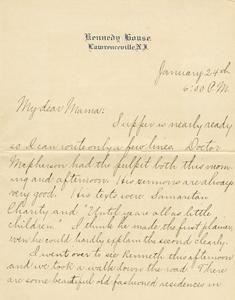 Kennedy House,
Lawrenceville, N.J.
January 24th
6:00 P.M.
My dear Mama:
Supper is nearly ready
so I can write only a few lines. Doctor
McPherson had the pulpit both this mor-
ning and afternoon. His sermons are always
very good. His texts were Samaritan
Charity and "Until ye are all as little
children." I think he made the first plainer,
even he could hardly explain the second clearly.
I went over to see Kenneth this afternoon
and we took a walk down the road. There
are some beautiful old fashioned residences in